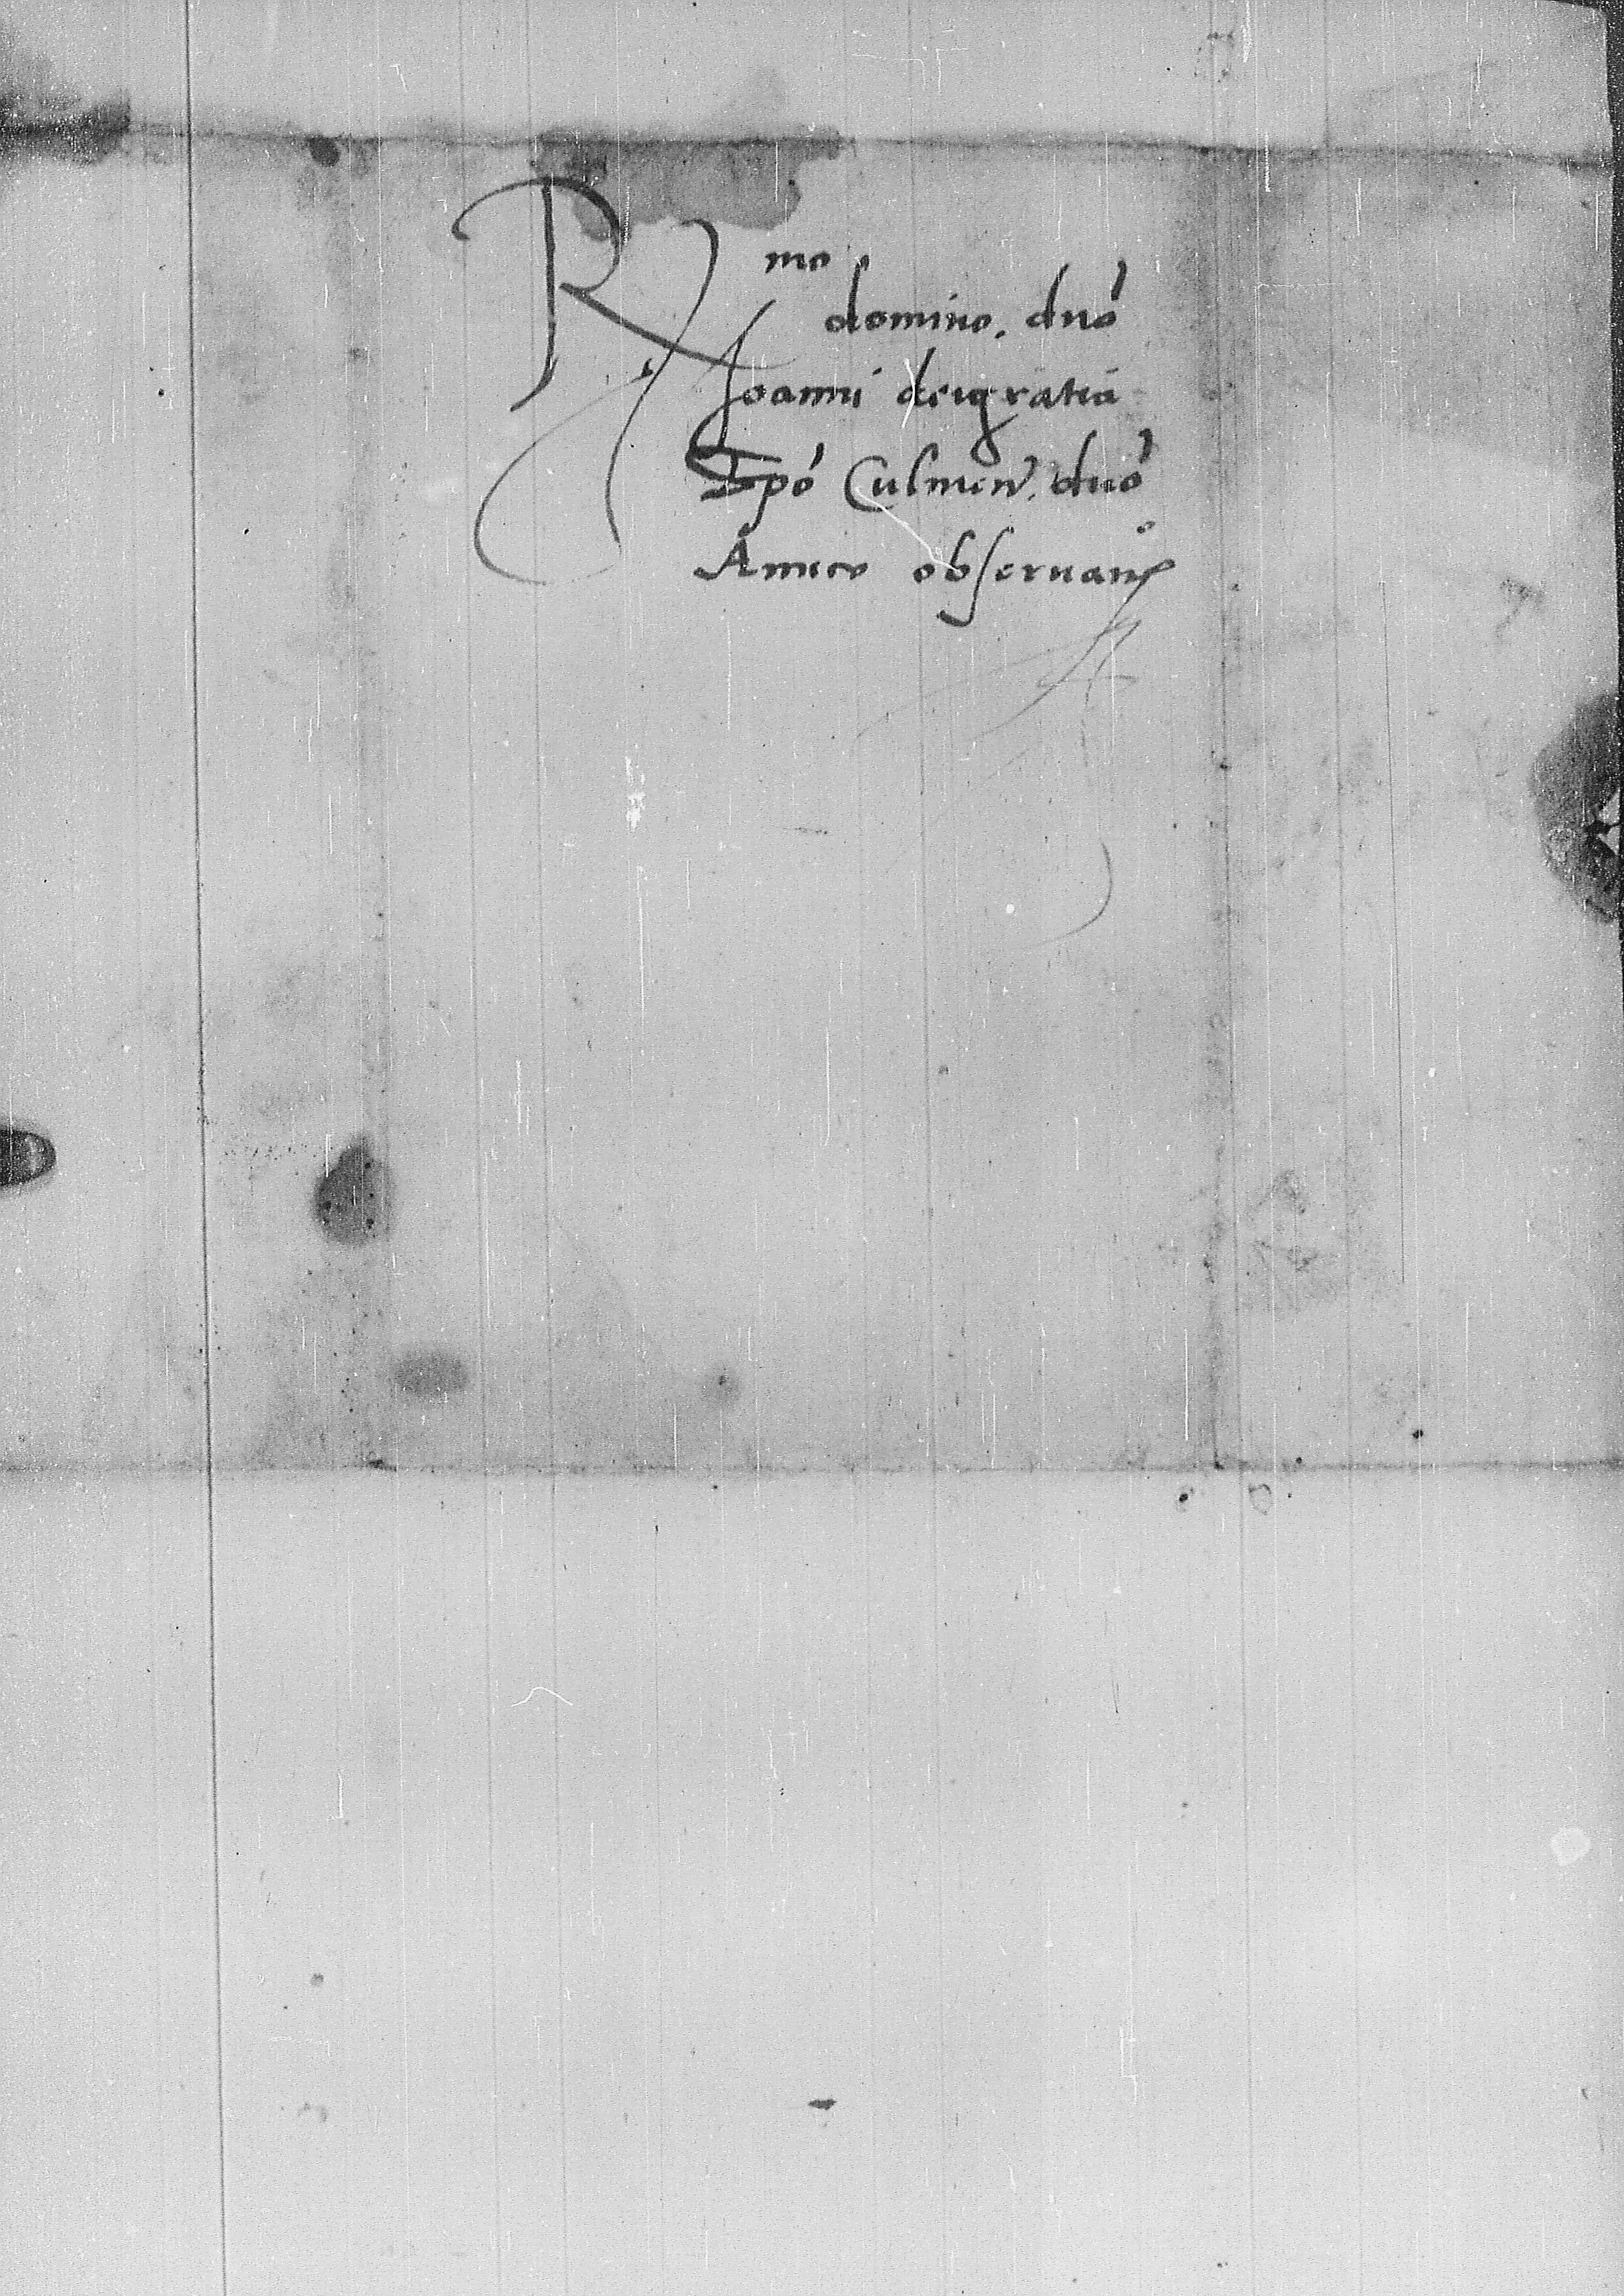 R mo
domino. dnó
Joanni dei gratia
Epó Culmen. dnó
Amico obseruanº